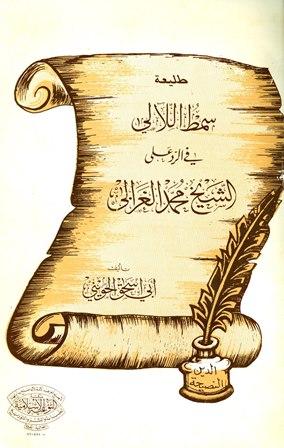 طليعة
سمط اللآلي
في الرد على
الشيخ محمد الغزالي
تأليف
أبي إسحق الحويني
الدين
النصيحة